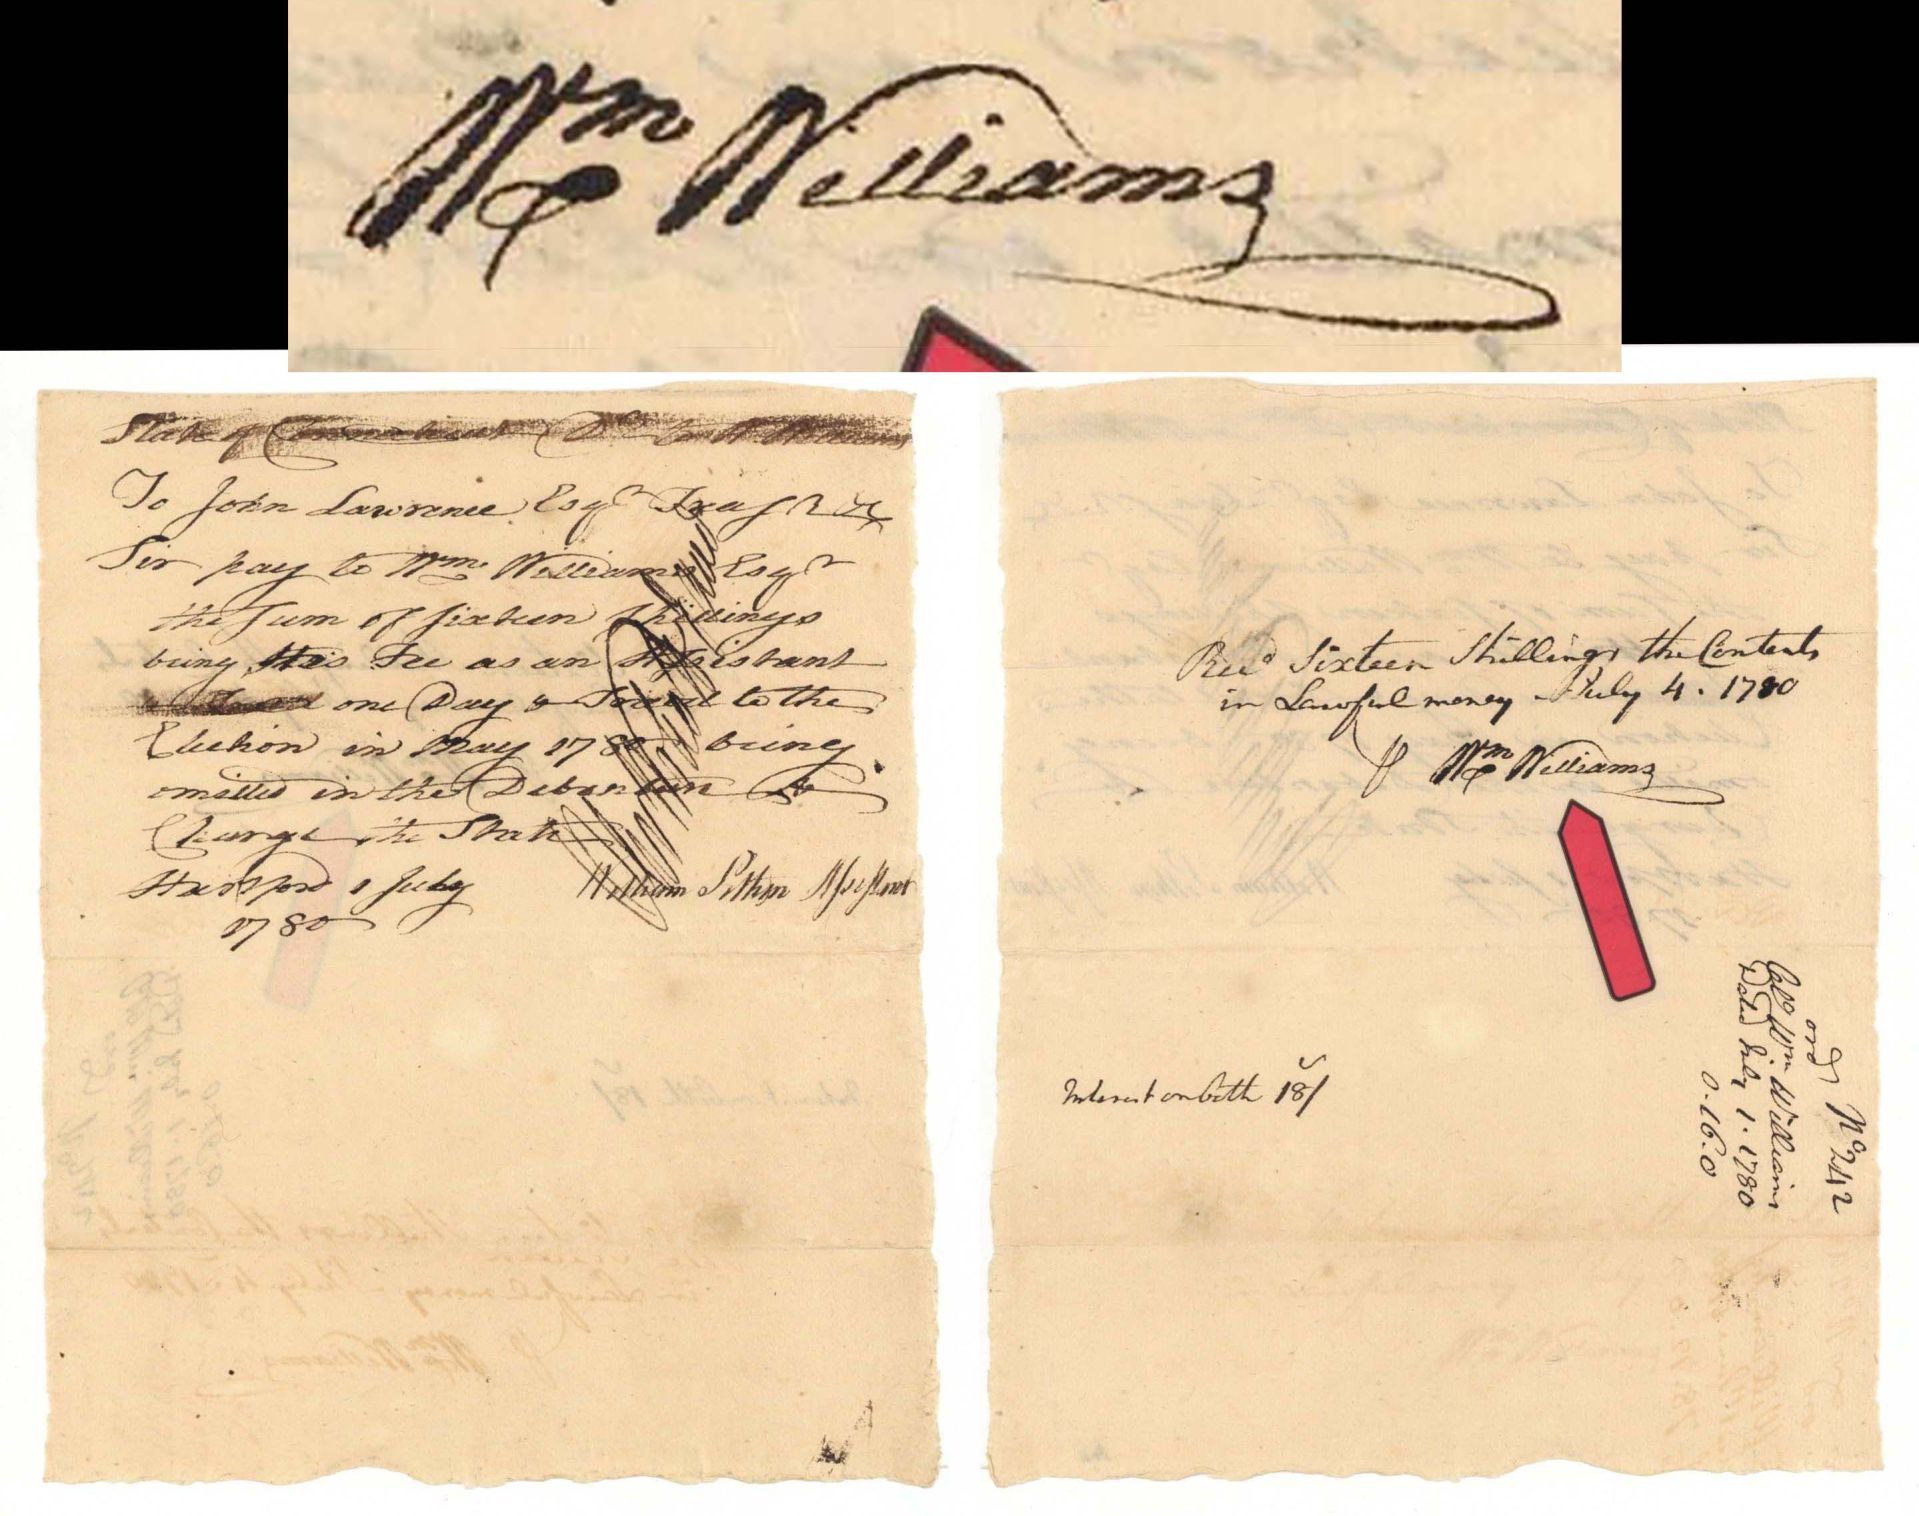 Wm Williams
State of Connecticut Dr to W Williams
To John Lawrence Esqr Treasr
Sir pay to Wm. Williams Esqr
the Sum of sixteen Shillings
being his Fee as an Assistant
one Day & Travel to the
Election in May 1780 being
omitted in the Debenture &
Charge the State
Hartford 1 July
1780
William Pitkin Assistant
Recd Sixteen Shillings the Contents
in Lawful money - July 4. 1780
Wm Williams
Interest on both 18/
No 242
ord
Colo Wm Williams
Dated July 1. 1780
0.16.0